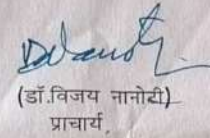 (डॉ.विजय नानोटी)
प्राचार्य,